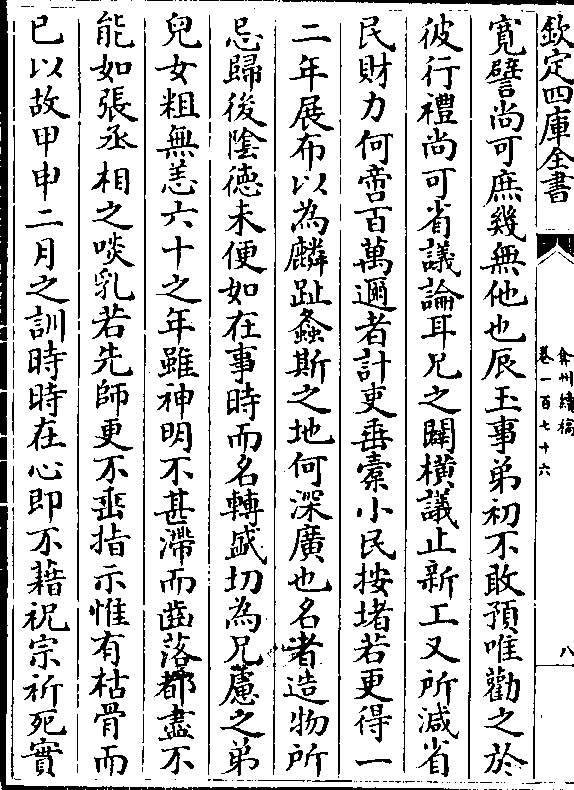 欽定四庫全書
弇州續稿
卷一百七十六
八
寛譬尚可庶幾無他也辰玉事弟初不敢預唯勸之於
彼行禮尚可省議論耳兄之闢橫議止新工又所減省
民財力何啻百萬邇者計吏垂橐小民按堵若更得一
二年展布以為麟趾螽斯之地何深廣也名者造物所
忌歸後陰徳未便如在事時而名轉盛切為兄慮之弟
兒女粗無恙六十之年雖神明不甚滯而齒落都盡不
能如張丞相之啖乳若先師更不垂指示惟有枯骨而
已以故甲申二月之訓時時在心即不藉祝宗祈死實